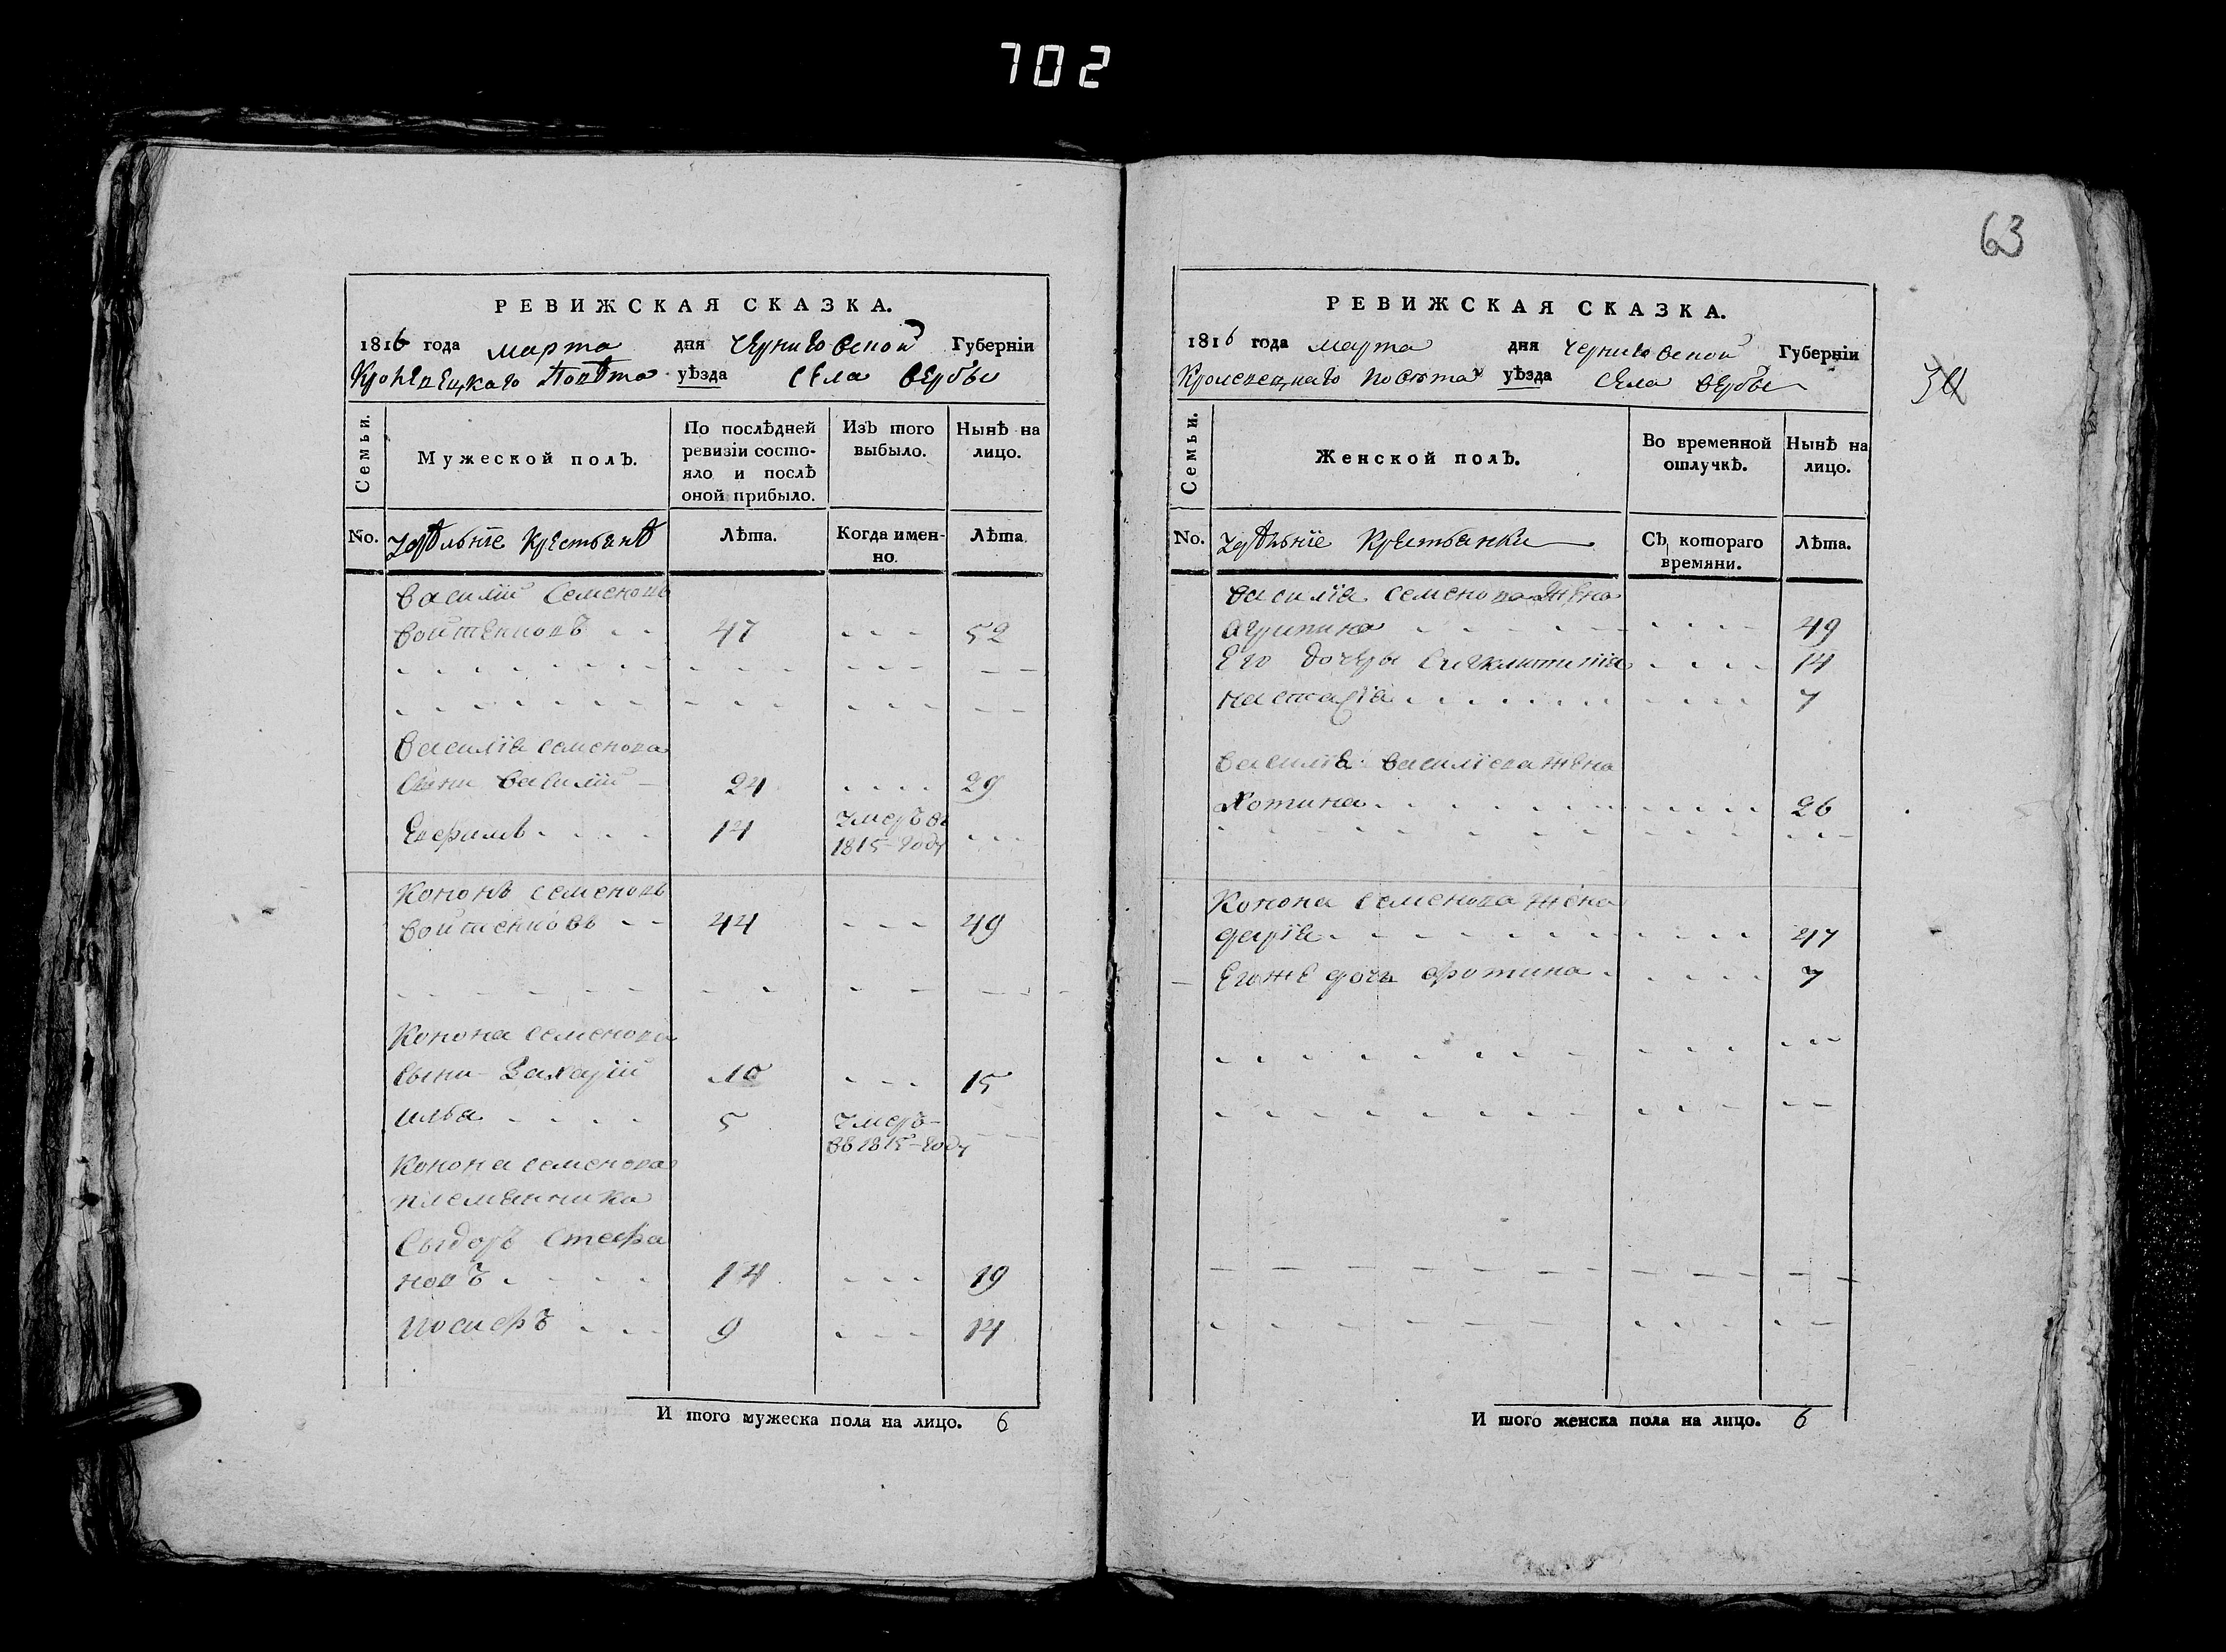 702
РЕВИЖСКАЯ СКАЗКА.
1816 года марта дня Черниговской Губерніи
Кролевецкаго Повѣта уѣзда Села Вербы
Семьи.
Мужеской полъ.
По послѣдней ревизіи состояло и послѣ оной прибыло.
Изъ того выбыло.
Нынѣ на лицо.
No. Удѣльніе Крестьянѣ
Лѣта.
Когда именно.
Лѣта.
Василій Семеновъ
Войтенковъ - - 47 - - - 52
Василія Семенова
Сыни Василій - 24 - - - - 29
Ефимъ - - - - 14 Умеръ въ - - -
1815-году
Кононъ Семеновъ
Войтенковъ - - 44 - - - 49
Конона Семенова
Сыни- Захарій 10 - - - 15
Илья - - - - 5 Умеръ-
въ 1815-году
Конона Семенова
племянника
Сыдоръ Стефа
новъ - - - - 14 - - - 19
Иосифъ - - - 9 - - - 14
И того мужеска пола на лицо. 6
63
РЕВИЖСКАЯ СКАЗКА.
1816 года марта дня Черниговской Губерніи
Кролевецкаго Повѣта уѣзда Села Вербы
Семьи.
Женской полъ.
Во временной отлучкѣ.
Нынѣ на лицо.
No. Удѣльніе Крестьянки
Съ котораго времяни.
Лѣта.
Василія Семенова жена
Агрипина - - - - - - - - 49
Его дочеры Сигклитикія - - - - 14
Настасія - - - - - - - - 7
Василія Василіева жена
Хотина - - - - - - - - 26
Конона Семенова жена
Дарія - - - - - - - - 47
Егоже дочь Фотина - - - - - 7
И того женска пола на лицо. 6